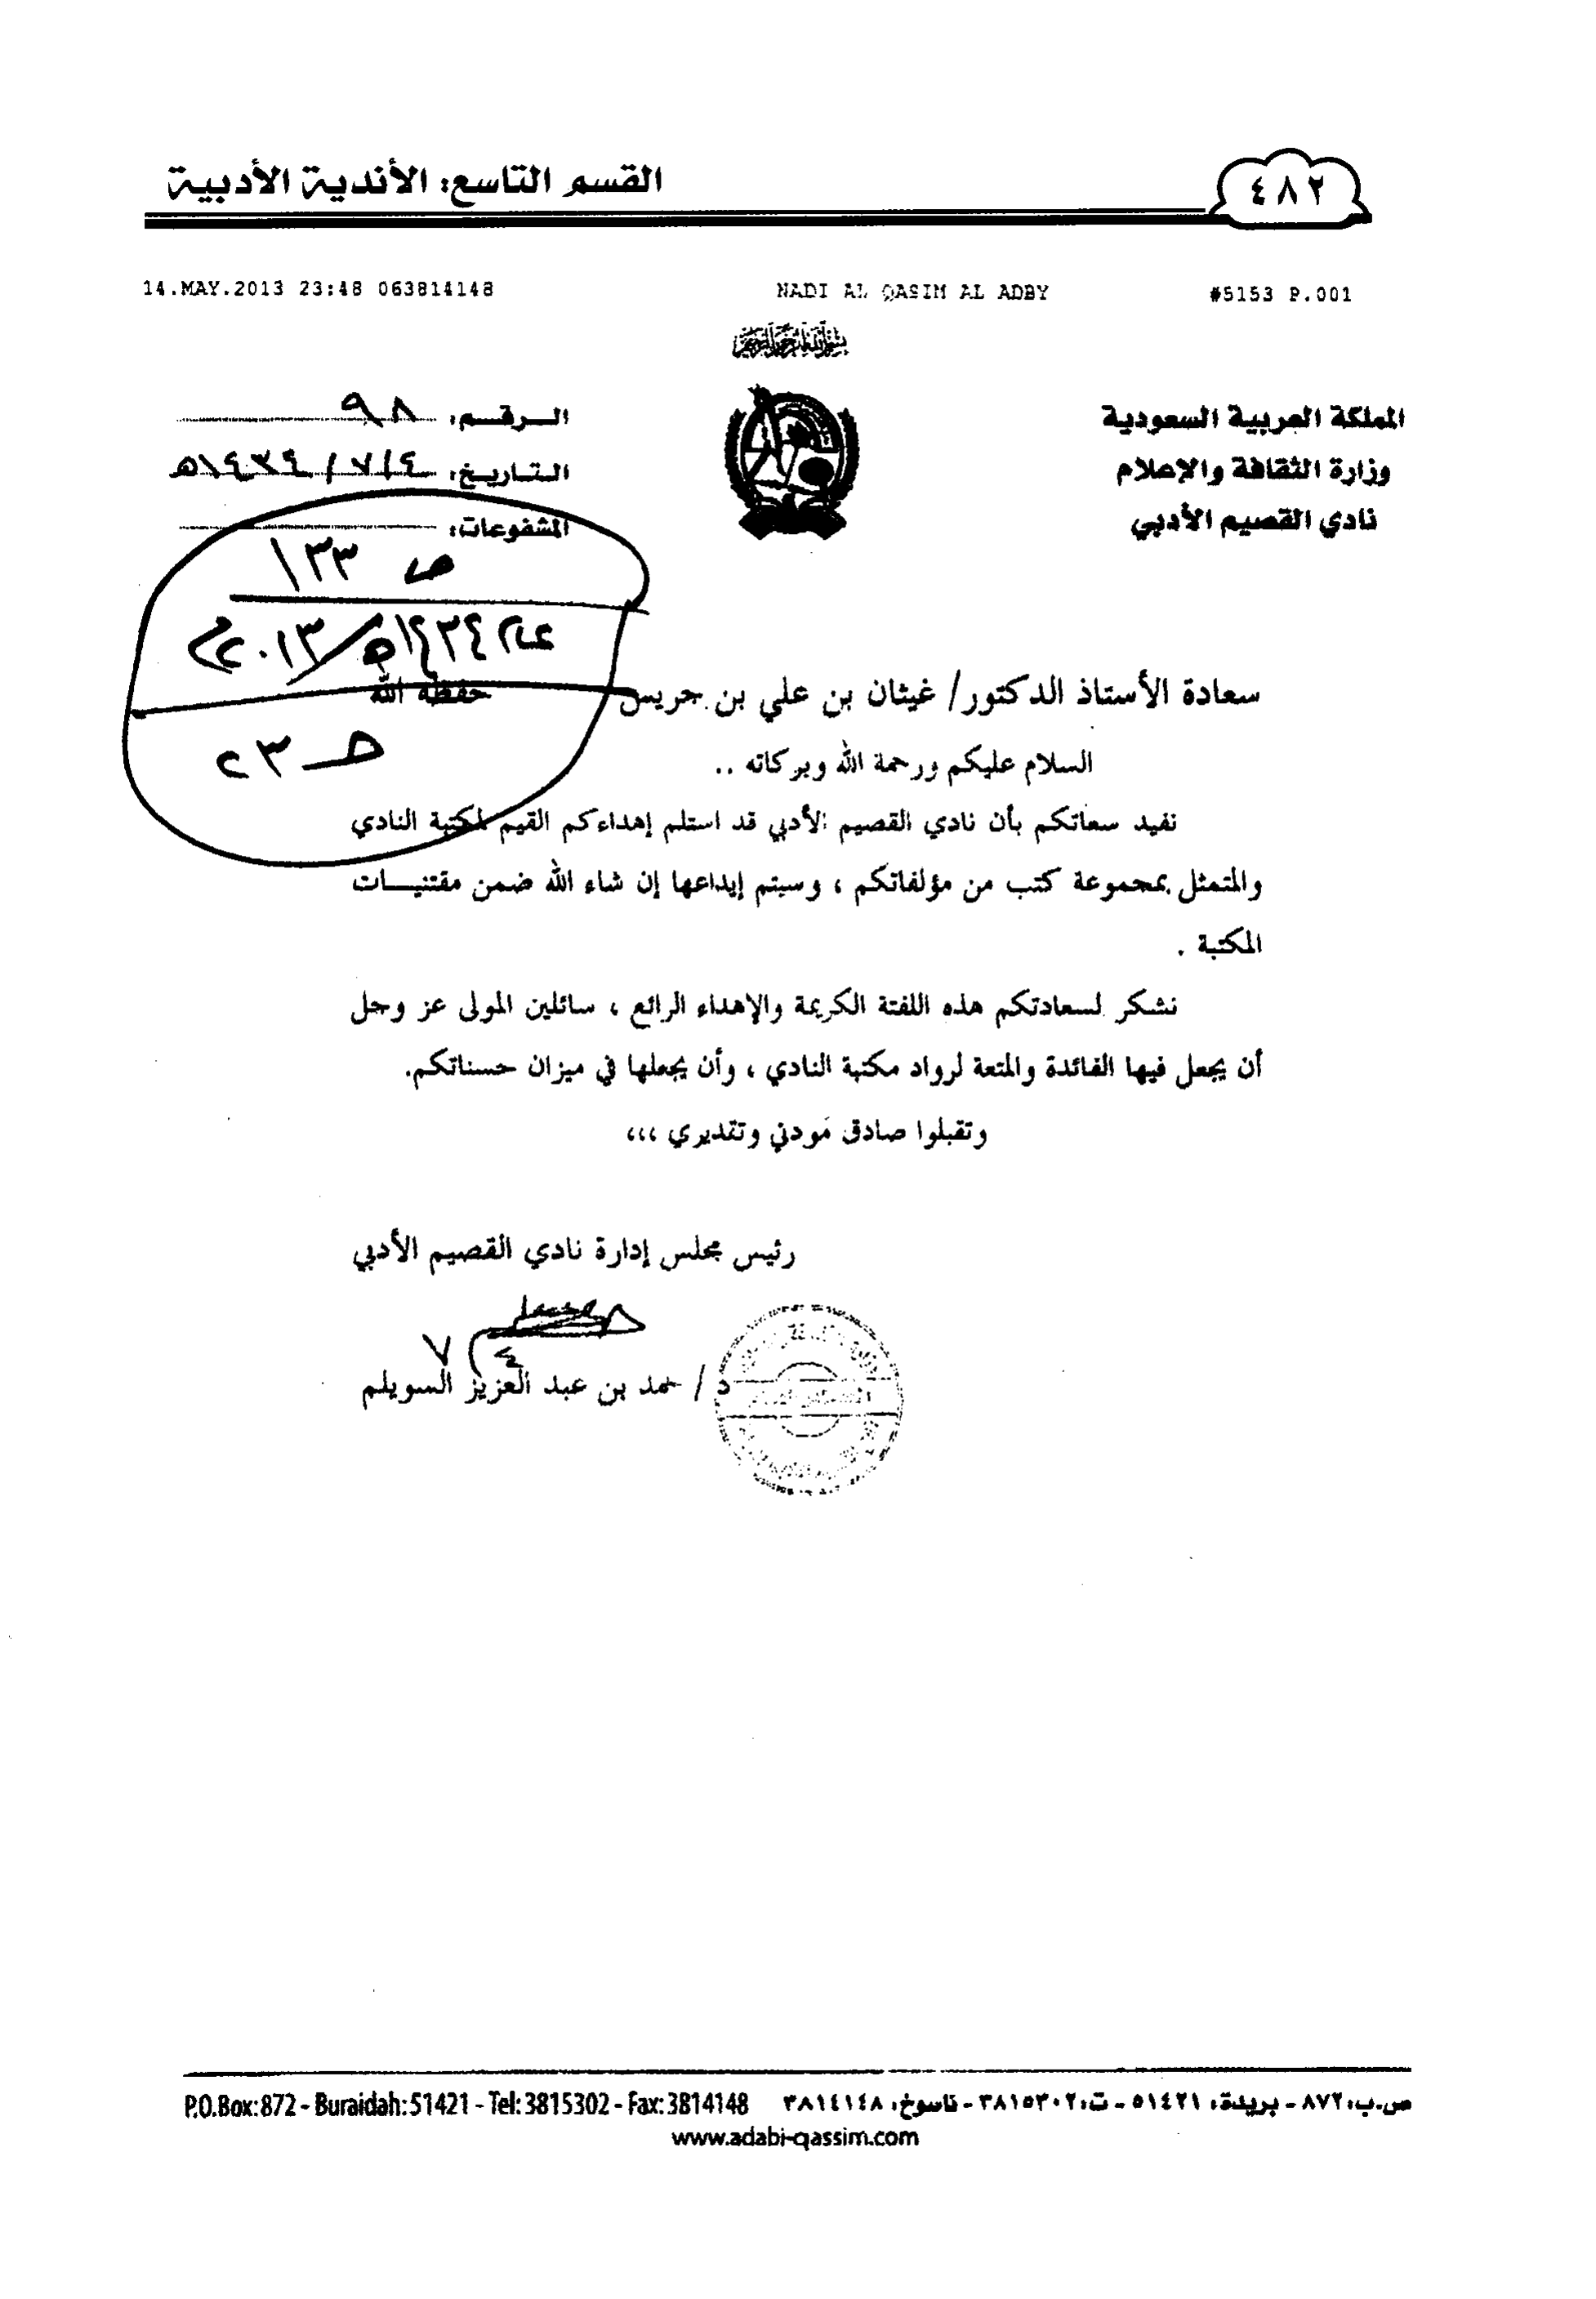 ٤٨٢
القسم التاسع: الأندية الأدبية
14.MAY.2013 23:48 063814148 NADI AL QASIM AL ADBY #5153 P.001
بسم الله الرحمن الرحيم
المملكة العربية السعودية
وزارة الثقافة والإعلام
نادي القصيم الأدبي
الـرقـم: ٩٨
التـاريـخ: ٤/٧/١٤٣٤هـ
المشفوعات:
ص ١٣٣
عام ١٤٣٤هـ/٢٠١٣م
حـ ٢٣
سعادة الأستاذ الدكتور/ غيثان بن علي بن جريس حفظه الله
السلام عليكم ورحمة الله وبركاته ..
نفيد سعاتكم بأن نادي القصيم الأدبي قد استلم إهداءكم القيم لمكتبة النادي
والمتمثل بمجموعة كتب من مؤلفاتكم ، وسيتم إيداعها إن شاء الله ضمن مقتنيـــات
المكتبة .
نشكر لسعادتكم هذه اللفتة الكريمة والإهداء الرائع ، سائلين المولى عز وجل
أن يجعل فيها الفائدة والمتعة لرواد مكتبة النادي ، وأن يجعلها في ميزان حسناتكم.
وتقبلوا صادق مودتي وتقديري ،،،
رئيس مجلس إدارة نادي القصيم الأدبي
٤/٧
د / حمد بن عبد العزيز السويلم
ص.ب: ٨٧٢ - بريدة: ٥١٤٢١ - ت: ٣٨١٥٣٠٢ - ناسوخ: ٣٨١٤١٤٨ P.O.Box:872 - Buraidah:51421 - Tel:3815302 - Fax:3814148
www.adabi-qassim.com